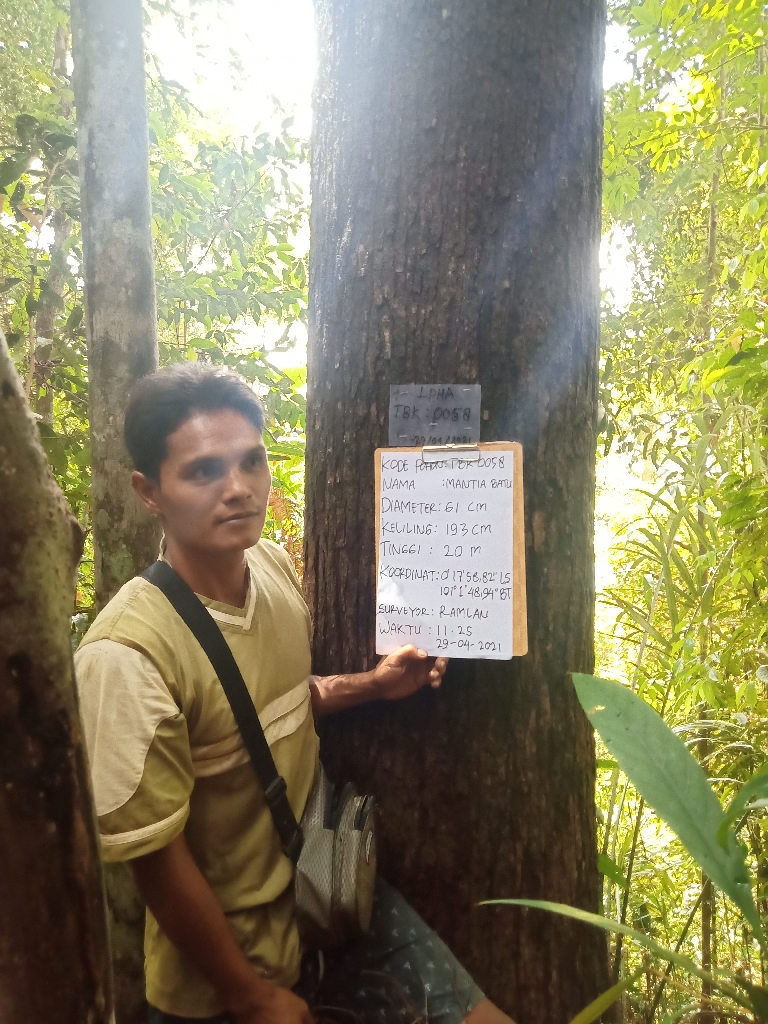 LDHA
TBK : 0058
29/04/2021
KODE POHON: TBK 0058
NAMA : MANTIA BATU
DIAMETER: 61 cm
KELILING: 193 cm
TINGGI : 20 m
KOORDINAT: 0°17'58,82"LS
101°1'48,94"BT
SURVEYOR: RAMLAN
WAKTU : 11.25
29-04-2021